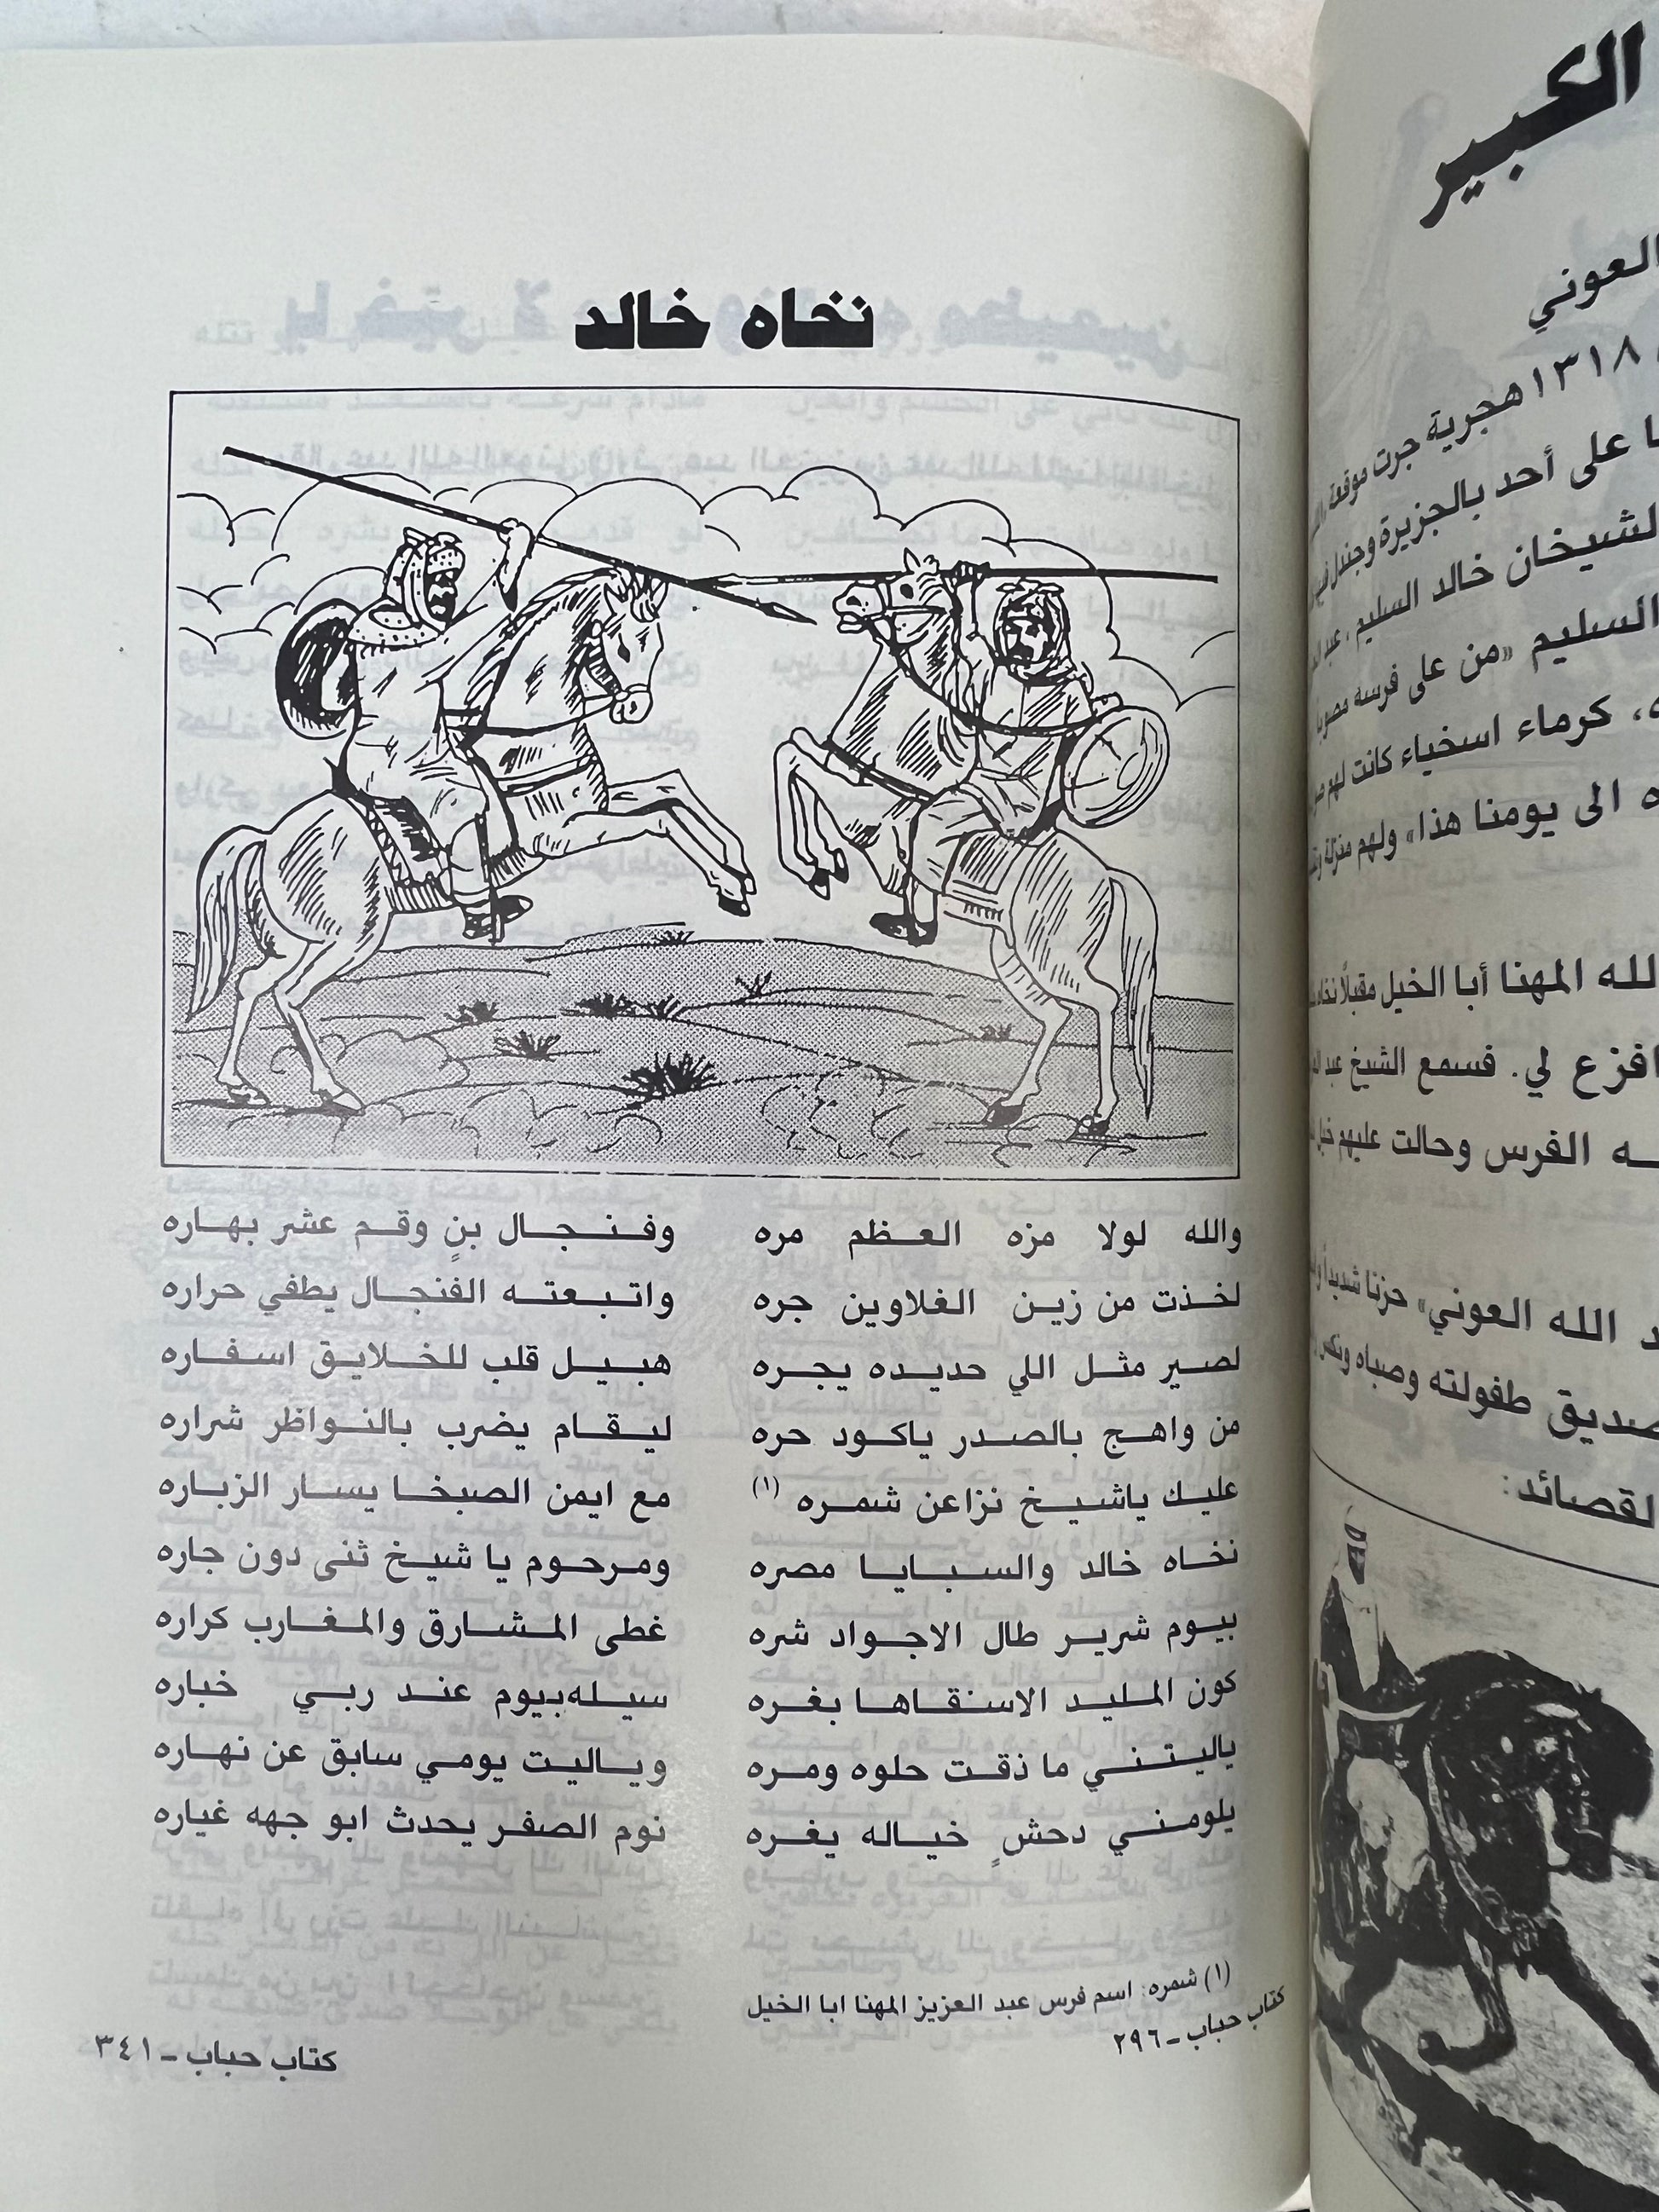 نخاه خالد
والله لولا مزه العظم مره وفنجال بنٍ وقم عشر بهاره
لخذت من زين الغلاوين جره واتبعته الفنجال يطفي حراره
لصير مثل اللي حديده يجره هبيل قلب للخلايق اسفاره
من واهج بالصدر ياكود حره ليقام يضرب بالنواظر شراره
عليك ياشيخ نزاعن شمره (١) مع ايمن الصبخا يسار الزباره
نخاه خالد والسبايا مصره ومرحوم يا شيخ ثنى دون جاره
بيوم شرير طال الاجواد شره غطى المشارق والمغارب كراره
كون المليد الاسنقاها بغره سيله بيوم عند ربي خباره
ياليتني ما ذقت حلوه ومره وياليت يومي سابق عن نهاره
يلومني دحشٍ خياله يغره نوم الصفر يحدث ابو جهه غياره
(١) شمره: اسم فرس عبد العزيز المهنا ابا الخيل
كتاب حباب ـ ٣٤١
الكبير
العوني
١٣١٨ هجرية جرت موقعة
على أحد بالجزيرة وجندل
الشيخان خالد السليم، عبد
السليم «من على فرسه مصوبا
كرماء اسخياء كانت لهم
الى يومنا هذا» ولهم منزلة
لله المهنا أبا الخيل مقبلًا
افزع لي. فسمع الشيخ عبد
ـه الفرس وحالت عليهم
الله العوني» حزنا شديداً
صديق طفولته وصباه
القصائد:
كتاب حباب ـ ٢٩٦